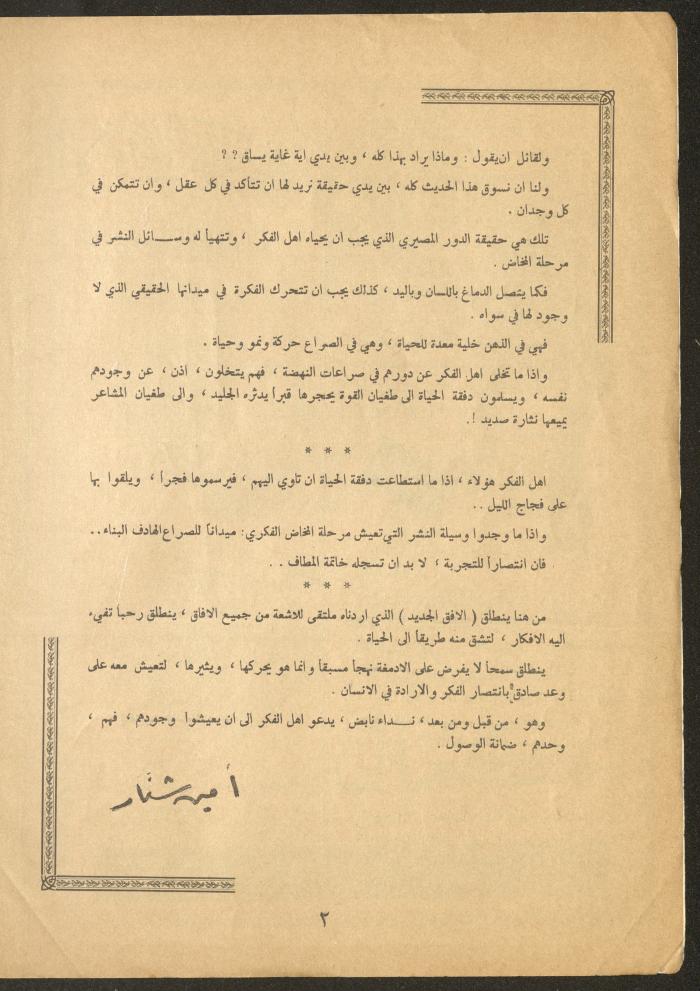 ولقائل ان يقول : وماذا يراد بهذا كله ، وبين يدي اية غاية يساق ؟ ؟
ولنا ان نسوق هذا الحديث كله ، بين يدي حقيقة نريد لها ان تتأكد في كل عقل ، وان تتمكن في
كل وجدان .
تلك هي حقيقة الدور المصيري الذي يجب ان يحياه اهل الفكر ، وتتهيأ له وســـائل النشر في
مرحلة المخاض .
فكما يتصل الدماغ باللسان وباليد ، كذلك يجب ان تتحرك الفكرة في ميدانها الحقيقي الذي لا
وجود لها في سواه .
فهي في الذهن خلية معدة للحياة ، وهي في الصراع حركة ونمو وحياة .
واذا ما تخلى اهل الفكر عن دورهم في صراعات النهضة ، فهم يتخلون ، اذن ، عن وجودهم
نفسه ، ويسلمون دفقة الحياة الى طغيان القوة يحجرها قبراً يدثره الجليد ، والى طغيان المشاعر
يميعها نثارة صديد !.
* * *
اهل الفكر هؤلاء ، اذا ما استطاعت دفقة الحياة ان تاوي اليهم ، فيرسموها فجراً ، ويلقوا بها
على فجاج الليل ..
واذا ما وجدوا وسيلة النشر التي تعيش مرحلة المخاض الفكري : ميداناً للصراع الهادف البناء ..
فان انتصاراً للتجربة ، لا بد ان تسجله خاتمة المطاف . .
* * *
من هنا ينطلق ( الافق الجديد ) الذي اردناه ملتقى للاشعة من جميع الافاق ، ينطلق رحباً تفيء
اليه الافكار ، لتشق منه طريقاً الى الحياة .
ينطلق سمحاً لا يفرض على الادمغة نهجاً مسبقاً وانما هو يحركها ، ويثيرها ، لتعيش معه على
وعد صادق بانتصار الفكر والارادة في الانسان .
وهو ، من قبل ومن بعد ، نـــداء نابض ، يدعو اهل الفكر الى ان يعيشوا وجودهم ، فهم ،
وحدهم ، ضمانة الوصول .
أمين شنار
٢